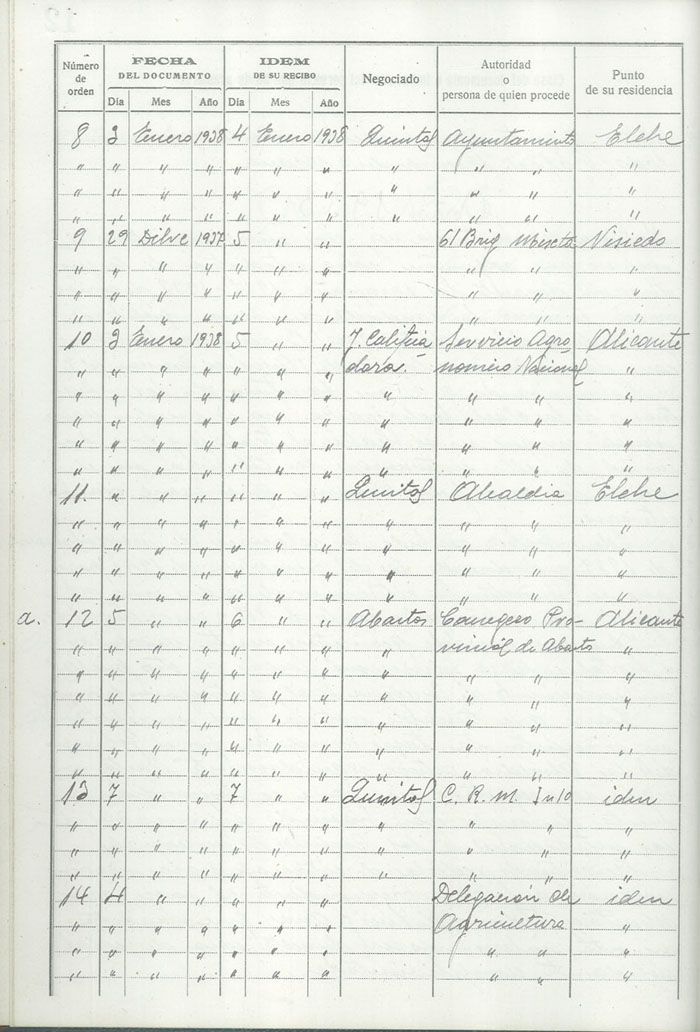 Número de orden | FECHA DEL DOCUMENTO | IDEM DE SU RECIBO | Negociado | Autoridad o persona de quien procede | Punto de su residencia
Dia | Mes | Año | Dia | Mes | Año
8 3 Enero 1938 4 Enero 1938 Quintas Ayuntamiento Elche
" " " " " " " " " " "
" " " " " " " " " " "
" " " " " " " " " " "
9 29 Dibre 1937 5 " " 61 Brig Mixta Visiedo
" " " " " " " " " "
" " " " " " " " " "
" " " " " " " " " "
10 3 Enero 1938 5 " " J. Califica Servicio Agro Alicante
" " " " " " " dora. nomico Nacional "
" " " " " " " " " " "
" " " " " " " " " " "
" " " " " " " " " " "
" " " " " " " " " " "
11. " " " " " " Quintas Alcaldia Elche
" " " " " " " " " " "
" " " " " " " " " " "
" " " " " " " " " " "
" " " " " " " " " " "
a. 12 5 " " 6 " " Abastos Consejero Pro- Alicante
" " " " " " " " vincial de Abasts "
" " " " " " " " " " "
" " " " " " " " " " "
" " " " " " " " " " "
" " " " " " " " " " "
" " " " " " " " " " "
13 7 " " 7 " " Quintas C. R. M. iden
" " " " " " " " " " "
" " " " " " " " " " "
" " " " " " " " " " "
14 4 " " " " " Delegación de iden
" " " " " " " Agricultura "
" " " " " " " " " "
" " " " " " " " " "